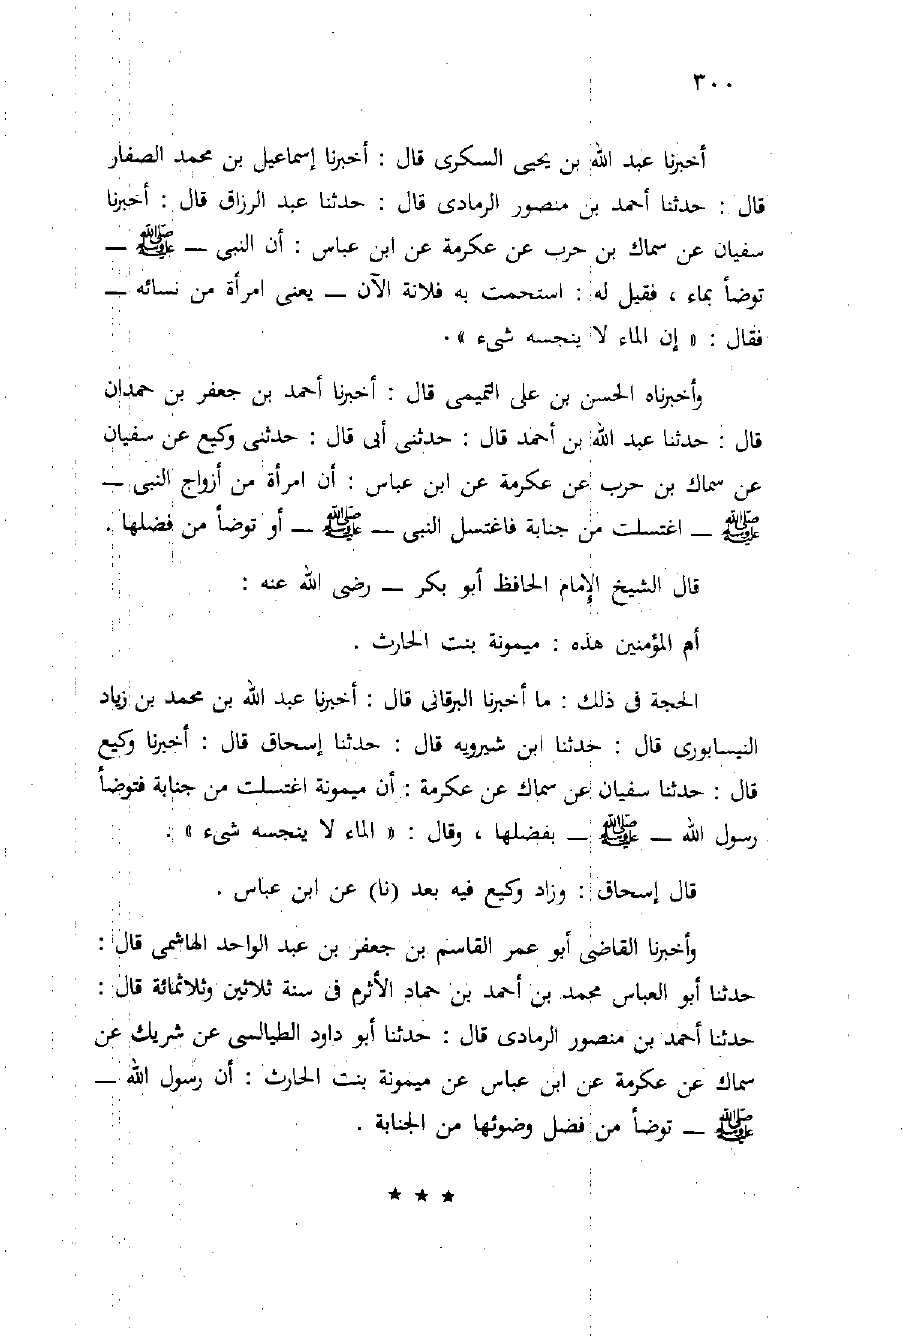 ٣٠٠
أخبرنا عبد الله بن يحيى السكرى قال : أخبرنا إسماعيل بن محمد الصفار
قال : حدثنا أحمد بن منصور الرمادى قال : حدثنا عبد الرزاق قال : أخبرنا
سفيان عن سماك بن حرب عن عكرمة عن ابن عباس : أن النبي ــ ﷺ ــ
توضأ بماء ، فقيل له : استحمت به فلانة الآن ــ يعنى امرأة من نسائه ــ
فقال : « إن الماء لا ينجسه شىء » .
وأخبرناه الحسن بن على التميمى قال : أخبرنا أحمد بن جعفر بن حمدان
قال : حدثنا عبد الله بن أحمد قال : حدثنى أبى قال : حدثنى وكيع عن سفيان
عن سماك بن حرب عن عكرمة عن ابن عباس : أن امرأة من أزواج النبى ــ
ﷺ ــ اغتسلت من جنابة فاغتسل النبى ــ ﷺ ــ أو توضأ من فضلها .
قال الشيخ الإمام الحافظ أبو بكر ــ رضى الله عنه :
أم المؤمنين هذه : ميمونة بنت الحارث .
الحجة فى ذلك : ما أخبرنا البرقانى قال : أخبرنا عبد الله بن محمد بن زياد
النيسابورى قال : حدثنا ابن شيرويه قال : حدثنا إسحاق قال : أخبرنا وكيع
قال : حدثنا سفيان عن سماك عن عكرمة : أن ميمونة اغتسلت من جنابة فتوضأ
رسول الله ــ ﷺ ــ بفضلها ، وقال : « الماء لا ينجسه شىء » .
قال إسحاق : وزاد وكيع فيه بعد (نا) عن ابن عباس .
وأخبرنا القاضى أبو عمر القاسم بن جعفر بن عبد الواحد الهاشمى قال :
حدثنا أبو العباس محمد بن أحمد بن حماد الأثرم فى سنة ثلاثين وثلاثمائة قال :
حدثنا أحمد بن منصور الرمادى قال : حدثنا أبو داود الطيالسى عن شريك عن
سماك عن عكرمة عن ابن عباس عن ميمونة بنت الحارث : أن رسول الله ــ
ﷺ ــ توضأ من فضل وضوئها من الجنابة .
★ ★ ★